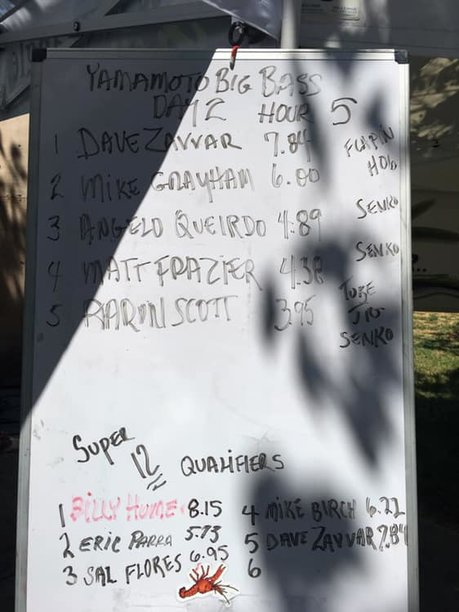 YAMAMOTO BIG BASS
DAY 2 HOUR 5
1 DAVE ZAVVAR 7.84 FLAPIN HOG
2 MIKE GRAYHAM 6.00 SENKO
3 ANGELO QUEIRDO 4.89 SENKO
4 MATT FRAZIER 4.38 TUBE JIG
5 AARON SCOTT 3.95 SENKO
SUPER 12 QUALIFIERS
1 BILLY HUME 8.15 4 MIKE BIRCH 6.22
2 ERIC PARRA 5.73 5 DAVE ZAVVAR 7.84
3 SAL FLORES 6.95 6